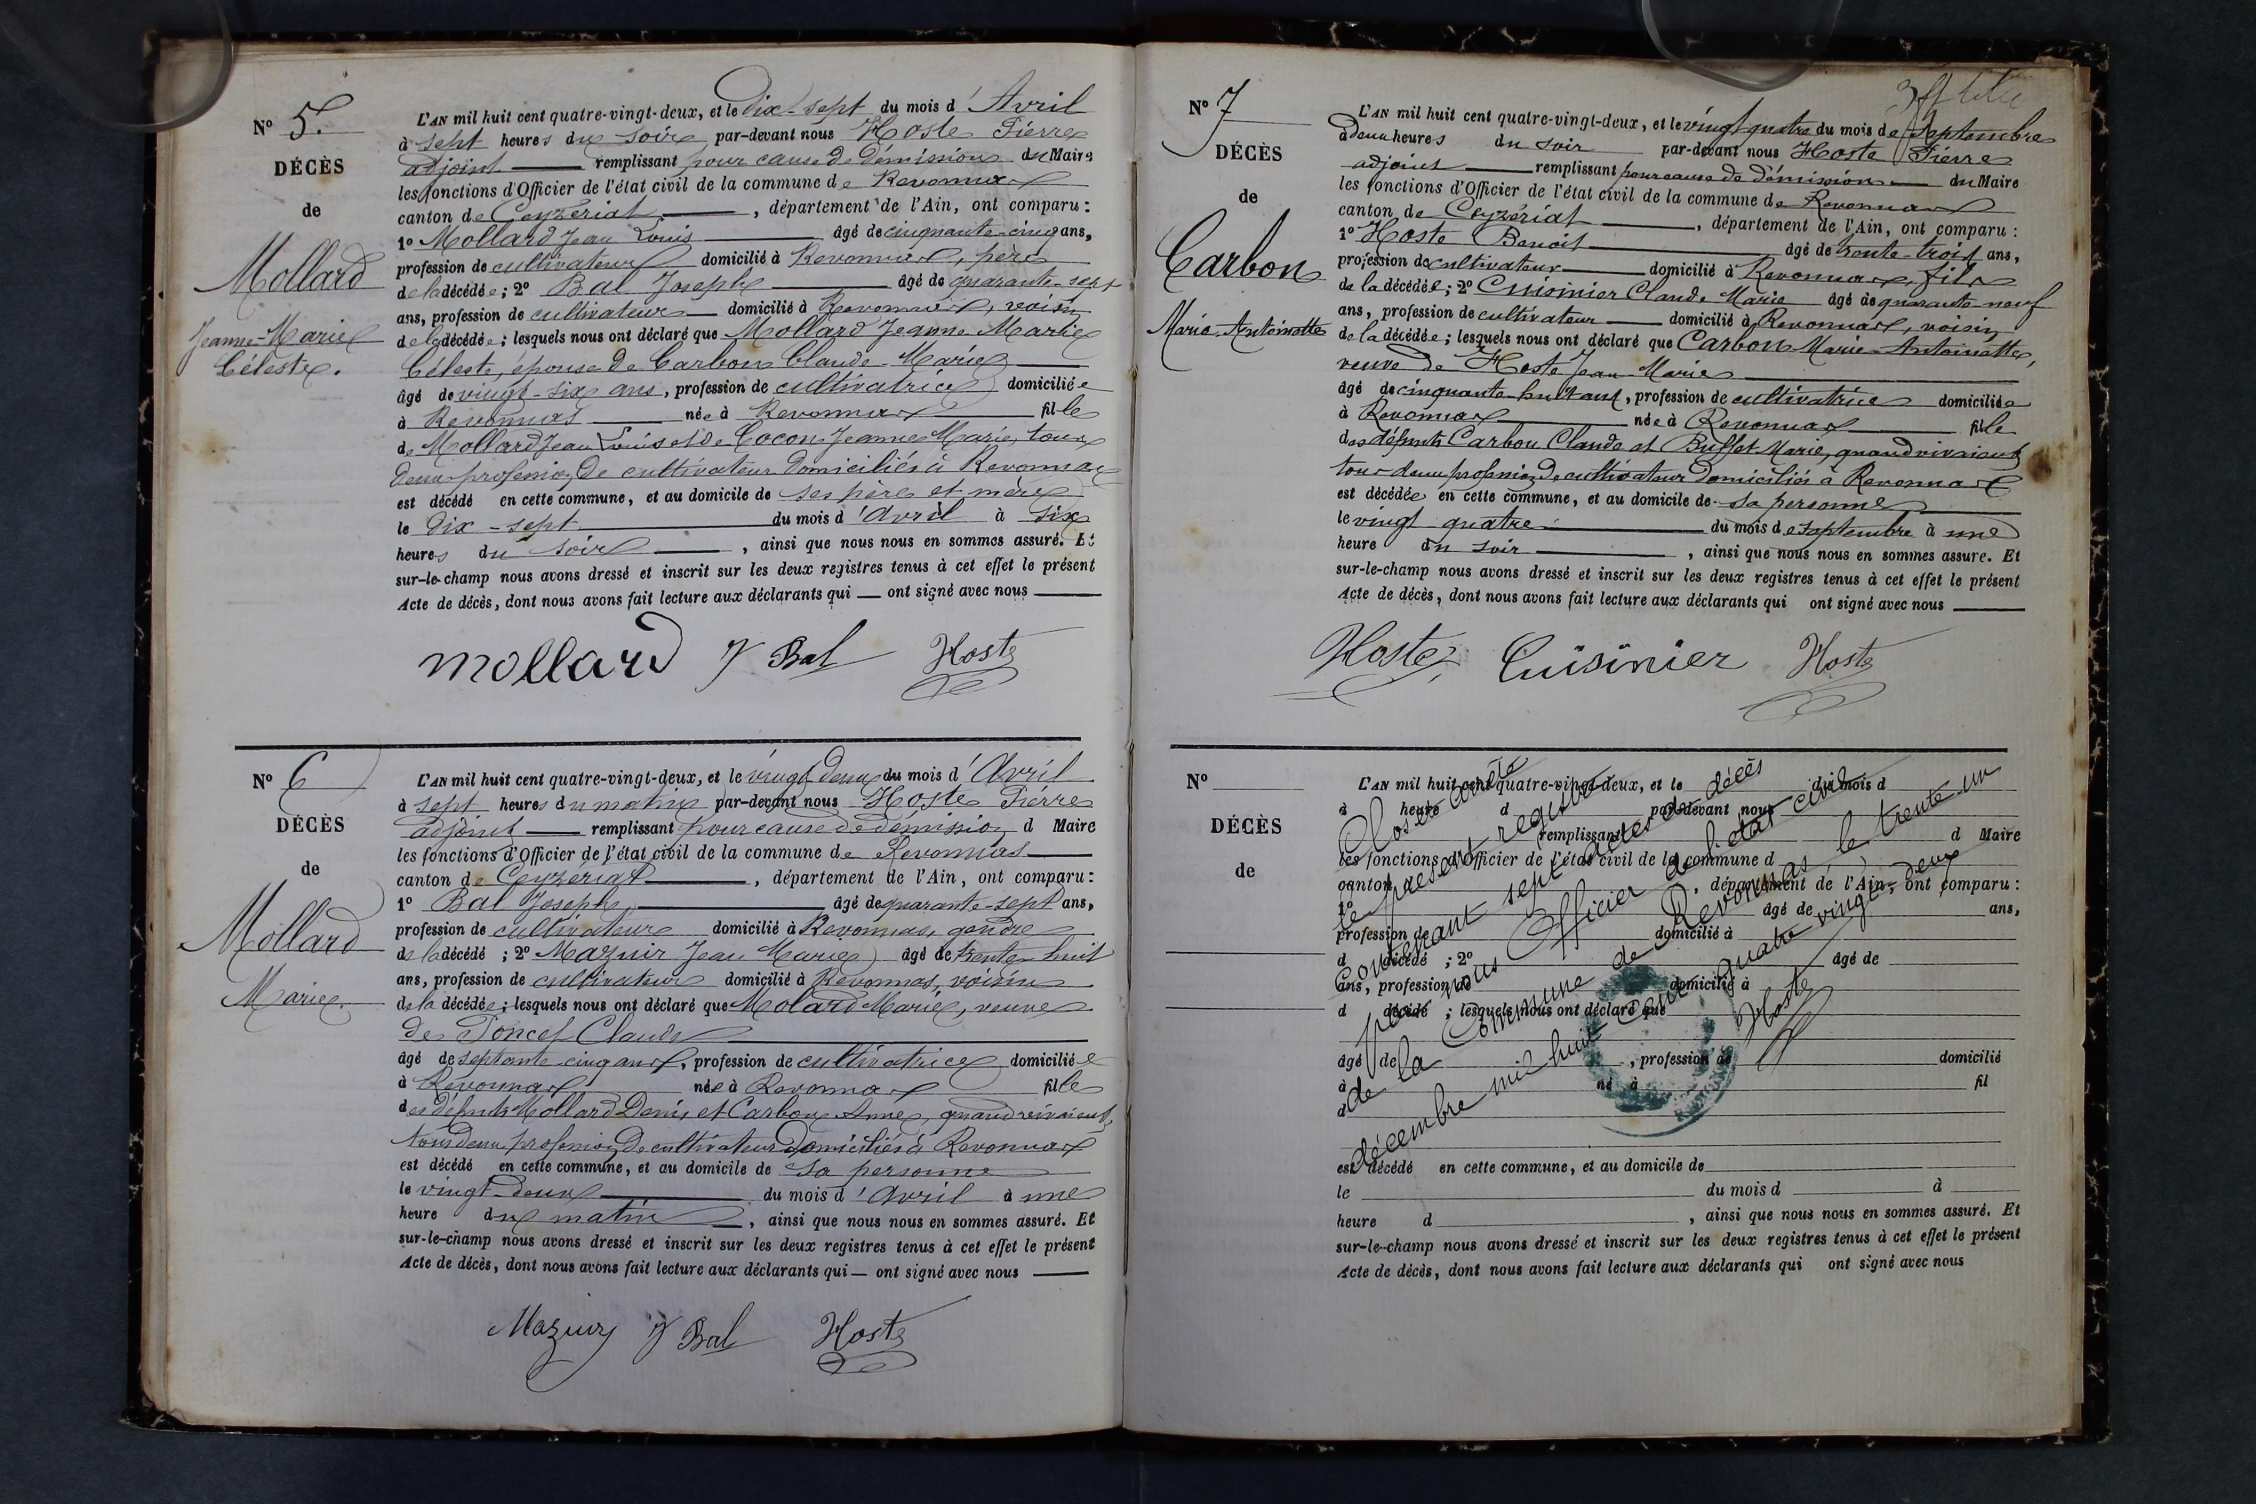 N° 5.
DÉCÈS
de
Mollard
Jeanne-Marie
Céleste.
L'AN mil huit cent quatre-vingt-deux, et le dix-sept du mois d'Avril
à sept heures du soir par-devant nous Hoste Pierre
adjoint remplissant pour cause de démission du Maire
les fonctions d'Officier de l'état civil de la commune de Revonnas
canton de Ceyzériat, département de l'Ain, ont comparu :
1° Mollard Jean Louis âgé de cinquante-cinq ans,
profession de cultivateur domicilié à Revonnas, père
de la décédée ; 2° Bal Joseph âgé de quarante-sept
ans, profession de cultivateur domicilié à Revonnas, voisin
de la décédée ; lesquels nous ont déclaré que Mollard Jeanne Marie
Céleste, épouse de Carbon Claude-Marie
âgé de vingt-six ans, profession de cultivatrice domiciliée
à Revonnas née à Revonnas fille
de Mollard Jean Louis et de Cocon Jeanne Marie, tous
deux profession de cultivateur domiciliés à Revonnas
est décédé en cette commune, et au domicile de ses père et mère
le dix-sept du mois d'Avril à six
heures du soir, ainsi que nous nous en sommes assuré. Et
sur-le-champ nous avons dressé et inscrit sur les deux registres tenus à cet effet le présent
Acte de décès, dont nous avons fait lecture aux déclarants qui — ont signé avec nous
mollard J Bal Hoste
N° 6
DÉCÈS
de
Mollard
Marie.
L'AN mil huit cent quatre-vingt-deux, et le vingt deux du mois d'Avril
à sept heures du matin par-devant nous Hoste Pierre
adjoint remplissant pour cause de démission d Maire
les fonctions d'Officier de l'état civil de la commune de Revonnas
canton de Ceyzériat, département de l'Ain, ont comparu :
1° Bal Joseph âgé de quarante-sept ans,
profession de cultivateur domicilié à Revonnas, gendre
de la décédé ; 2° Mazuir Jean Marie âgé de trente-huit
ans, profession de cultivateur domicilié à Revonnas, voisin
de la décédée ; lesquels nous ont déclaré que Molard Marie, veuve
de Poncet Claude
âgé de septante-cinq ans, profession de cultivatrice domiciliée
à Revonnas née à Revonnas fille
des défunts Mollard Denis et Carbon Anne, quand vivaient
tous deux profession de cultivateur domiciliés à Revonnas
est décédé en cette commune, et au domicile de sa personne
le vingt-deux du mois d'Avril à une
heure du matin, ainsi que nous nous en sommes assuré. Et
sur-le-champ nous avons dressé et inscrit sur les deux registres tenus à cet effet le présent
Acte de décès, dont nous avons fait lecture aux déclarants qui — ont signé avec nous
Mazuir J Bal Hoste
N° 7
DÉCÈS
de
Carbon
Marie-Antoinette
L'AN mil huit cent quatre-vingt-deux, et le vingt quatre du mois de Septembre
à deux heures du soir par-devant nous Hoste Pierre
adjoint remplissant pour cause de démission du Maire
les fonctions d'Officier de l'état civil de la commune de Revonnas
canton de Ceyzériat, département de l'Ain, ont comparu :
1° Hoste Benoit âgé de trente-trois ans,
profession de cultivateur domicilié à Revonnas, fils
de la décédée ; 2° Cuisinier Claude Marie âgé de quarante neuf
ans, profession de cultivateur domicilié à Revonnas, voisin
de la décédée ; lesquels nous ont déclaré que Carbon Marie-Antoinette,
veuve de Hoste Jean Marie
âgé de cinquante-huit ans, profession de cultivatrice domiciliée
à Revonnas née à Revonnas fille
des défunts Carbon Claude et Buffet Marie, quand vivaient
tous deux profession de cultivateur domiciliés à Revonnas
est décédée en cette commune, et au domicile de sa personne
le vingt quatre du mois de septembre à une
heure du soir, ainsi que nous nous en sommes assuré. Et
sur-le-champ nous avons dressé et inscrit sur les deux registres tenus à cet effet le présent
Acte de décès, dont nous avons fait lecture aux déclarants qui ont signé avec nous
Hoste Cuisinier Hoste
N°
DÉCÈS
de
L'AN mil huit cent quatre-vingt-deux, et le du mois d
à heure d par-devant nous
remplissant d Maire
les fonctions d'Officier de l'état civil de la commune d
canton, département de l'Ain, ont comparu :
1° âgé de ans,
profession de domicilié à
d décédé ; 2° âgé de
ans, profession de domicilié à
d décédé ; lesquels nous ont déclaré que
âgé de, profession de domicilié
à né à fil
d
est décédé en cette commune, et au domicile de
le du mois d à
heure d, ainsi que nous nous en sommes assuré. Et
sur-le-champ nous avons dressé et inscrit sur les deux registres tenus à cet effet le présent
Acte de décès, dont nous avons fait lecture aux déclarants qui ont signé avec nous
Clos et arrêté
le présent registre
contenant sept actes de décès
par nous Officier de l'état civil
de la commune de Revonnas le trente un
décembre mil huit cent quatre vingt-deux
Hoste